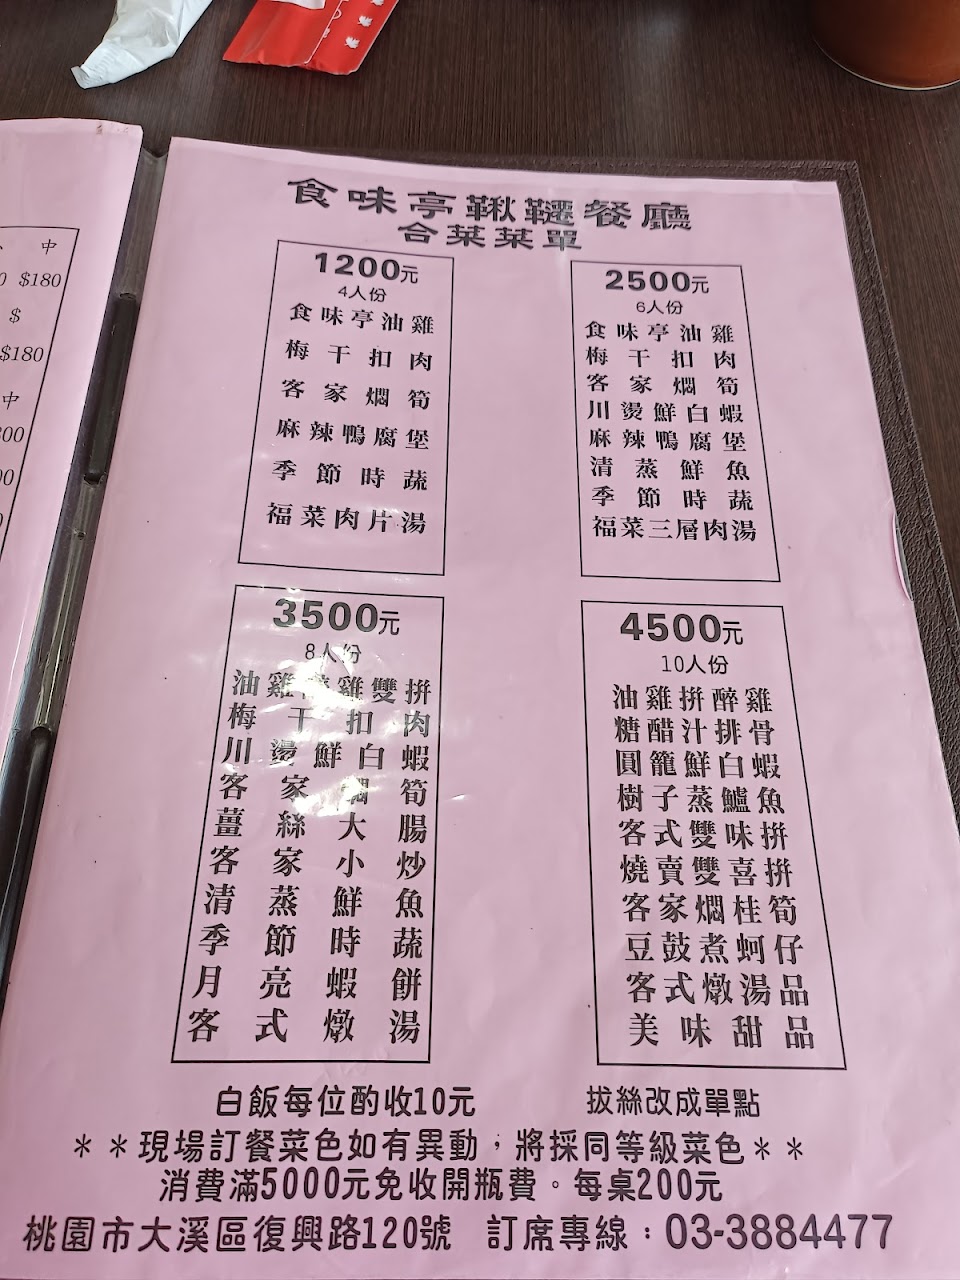 中
$180
$
$180
中
食味亭鞦韆餐廳
合菜菜單
1200元
4人份
食味亭油雞
梅干扣肉
客家燜筍
麻辣鴨腐堡
季節時蔬
福菜肉片湯
2500元
6人份
食味亭油雞
梅干扣肉
客家燜筍
川燙鮮白蝦
麻辣鴨腐堡
清蒸鮮魚
季節時蔬
福菜三層肉湯
3500元
8人份
油雞雞雙拼
梅干扣肉
川燙鮮白蝦
客家燜筍
薑絲大腸
客家小炒
清蒸鮮魚
季節時蔬
月亮蝦餅
客式燉湯
4500元
10人份
油雞拼醉雞
糖醋汁排骨
圓籠鮮白蝦
樹子蒸鱸魚
客式雙味拼
燒賣雙喜拼
客家燜桂筍
豆鼓煮蚵仔
客式燉湯品
美味甜品
白飯每位酌收10元 拔絲改成單點
＊＊現場訂餐菜色如有異動，將採同等級菜色＊＊
消費滿5000元免收開瓶費。每桌200元
桃園市大溪區復興路120號 訂席專線：03-3884477